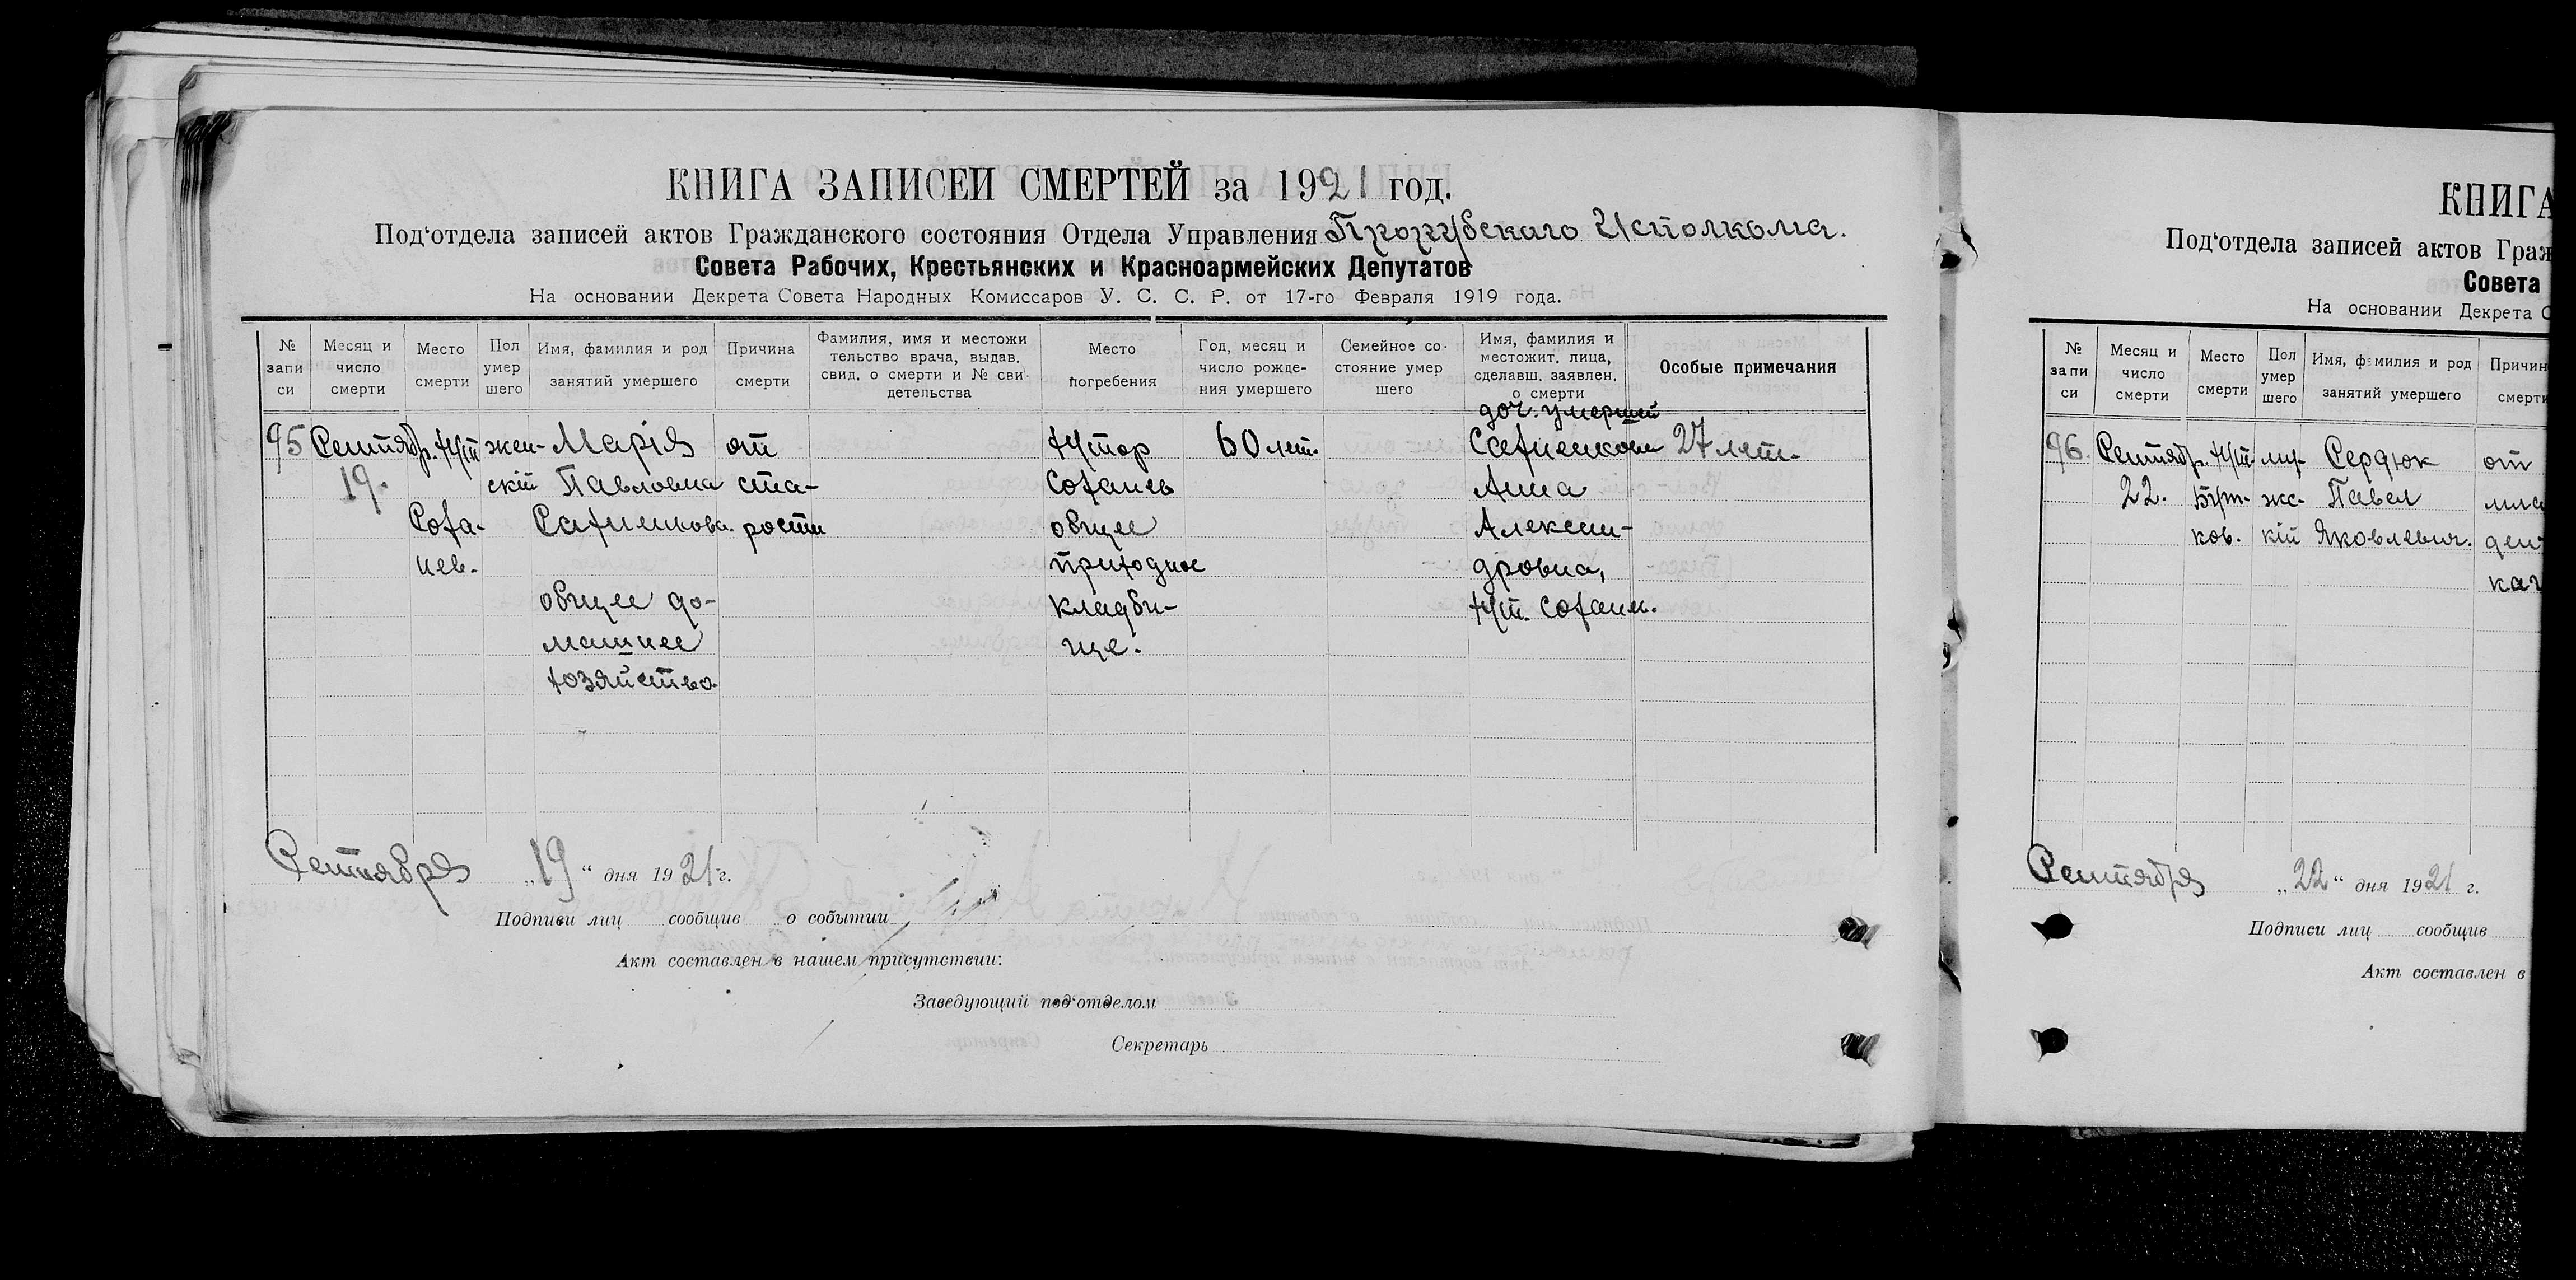 КНИГА ЗАПИСЕЙ СМЕРТЕЙ за 1921 год.
Под‘отдела записей актов Гражданского состояния Отдела Управления Исполкома.
Совета Рабочих, Крестьянских и Красноармейских Депутатов
На основании Декрета Совета Народных Комиссаров У. С. С. Р. от 17-го Февраля 1919 года.
№ запи си
Месяц и число смерти
Место смерти
Пол умер шего
Имя, фамилия и род занятий умершего
Причина смерти
Фамилия, имя и местожи тельство врача, выдав. свид. о смерти и № сви детельства
Место погребения
Год, месяц и число рожде- ния умершего
Семейное со- стояние умер шего
Имя, фамилия и местожит. лица, сделавш. заявлен. о смерти
Особые примечания
95
Сентябр.
19.
Хут.
Соха-
нев.
жен-
скій
Марія
Павловна
Сахненкова.
общее до-
машнее
хозяйство.
от
ста-
рости
Хутор
Сохань
общее
приходное
кладби-
ще.
60 лет.
доч. умершей
Сахненкова
Анна
Алексан-
дровна,
хут. Сохань.
27 лет.
Сентября „19“ дня 1921 г.
Подписи лиц сообщив о событии
Акт составлен в нашем присутствии:
Заведующий под‘отделом
Секретарь
КНИГА
Под‘отдела записей актов Граж
Совета
На основании Декрета С
№ запи си
Месяц и число смерти
Место смерти
Пол умер шего
Имя, фамилия и род занятий умершего
Причин смерти
96.
Сентябр.
22.
Хут.
Бут-
ков.
му-
жс-
кій
Сердюк
Павел
Яковлевич.
от
мла
ден
кат
Сентября „22“ дня 1921 г.
Подписи лиц сообщив
Акт составлен в